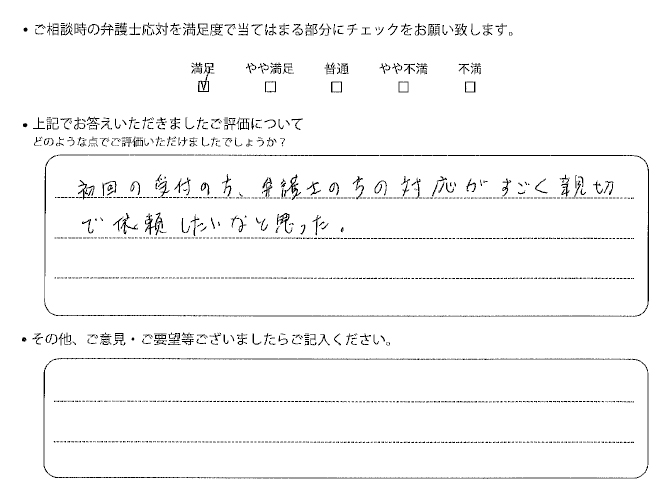 ・ご相談時の弁護士応対を満足度で当てはまる部分にチェックをお願い致します。
満足 やや満足 普通 やや不満 不満
・上記でお答えいただきましたご評価について
どのような点でご評価いただけましたでしょうか？
初回の受付の方、弁護士の方の対応がすごく親切
で依頼したいなと思った。
・その他、ご意見・ご要望等ございましたらご記入ください。